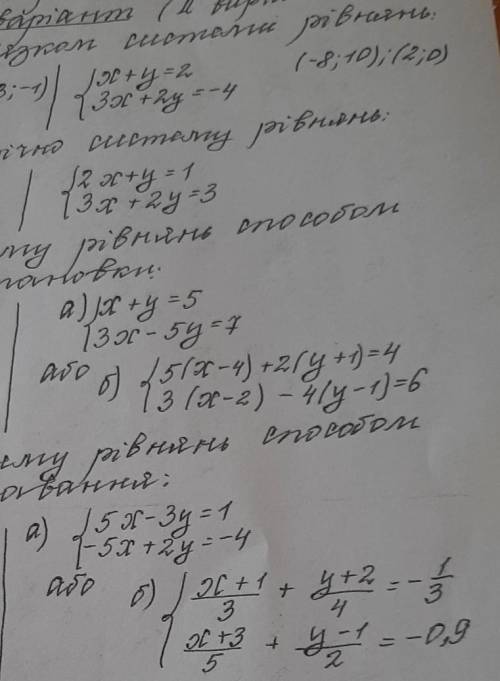 варіант (II варі
язком системи рівнянь:
3;-1) | { x+y=2 (-8;10);(2;0)
{ 3x+2y=-4
ічно систему рівнянь:
{ 2x+y=1
{ 3x+2y=3
му рівнянь способом
тановки:
а) { x+y=5
{ 3x-5y=7
або б) { 5(x-4)+2(y+1)=4
{ 3(x-2)-4(y-1)=6
ему рівнянь способом
авання:
а) { 5x-3y=1
{ -5x+2y=-4
або б) { (x+1)/3 + (y+2)/4 = -1/3
{ (x+3)/5 + (y-1)/2 = -0,9